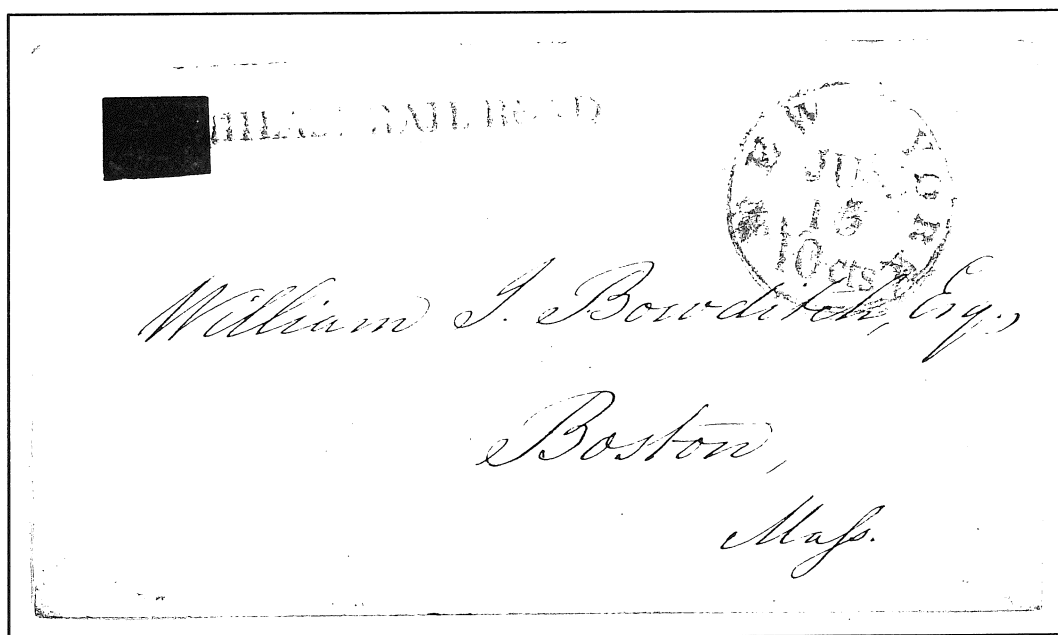 HILAD. RAILROAD
NEW YORK
JUN
15
10 cts
William I. Bowditch, Esq.,
Boston,
Mass.